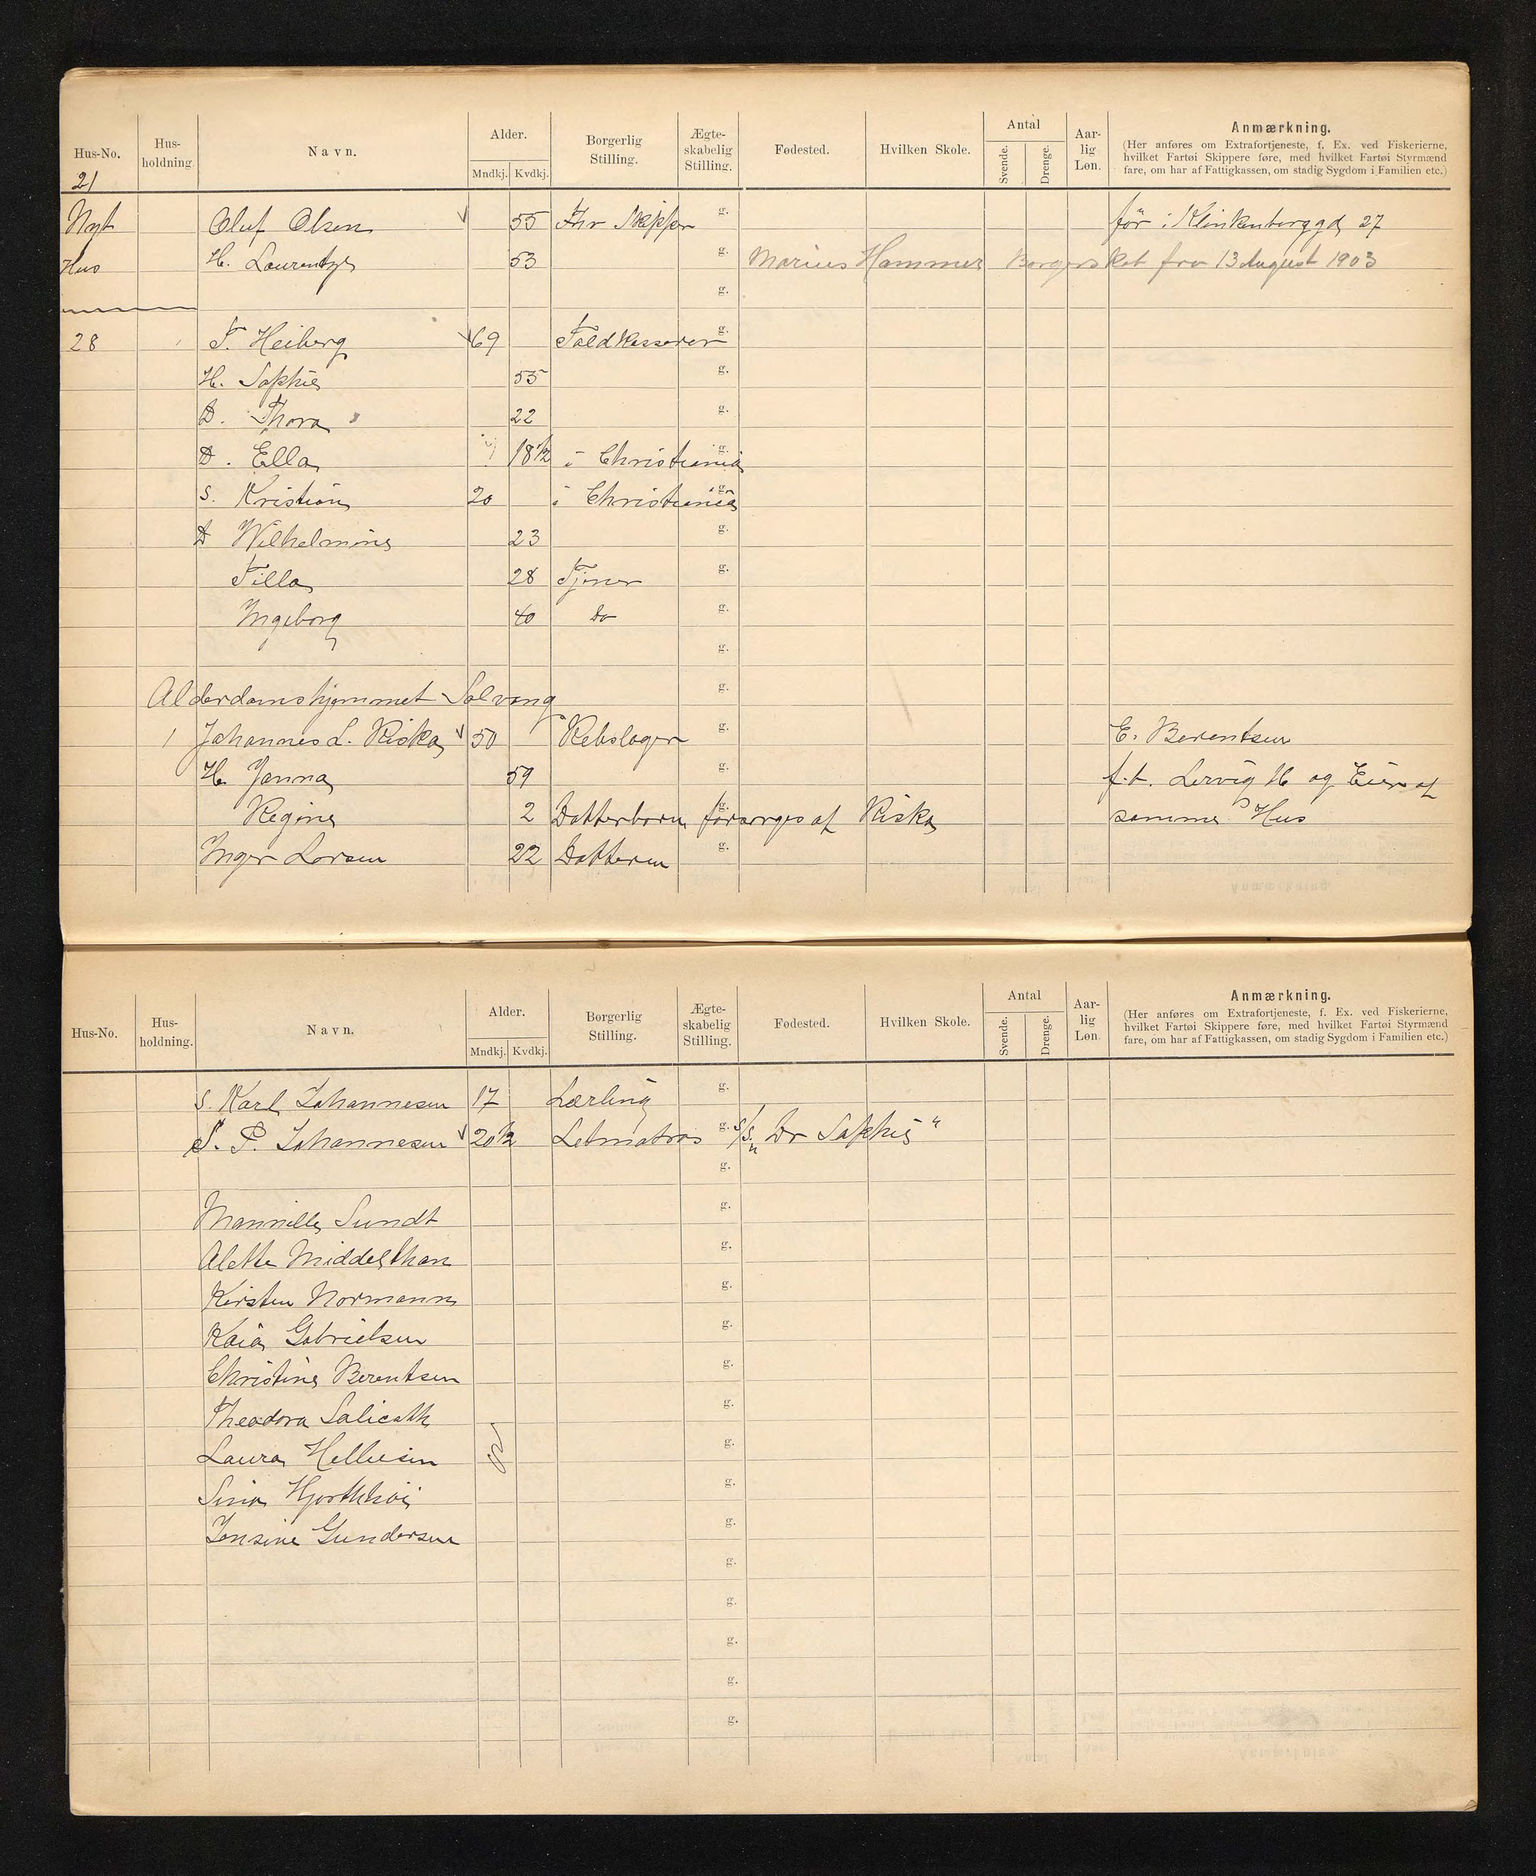 Hus-No. Hus-holdning. Navn. Alder. Mndkj. Kvdkj. Borgerlig Stilling. Ægte-skabelig Stilling. Fødested. Hvilken Skole. Antal Svende. Drenge. Aar-lig Løn. Anmærkning.
(Her anføres om Extrafortjeneste, f. Ex. ved Fiskerierne, hvilket Fartøi Skippere føre, med hvilket Fartøi Styrmænd fare, om har af Fattigkassen, om stadig Sygdom i Familien etc.)
21
Nyt Oluf Olsen 55 Fhv Skipper g. før i Klinkenberggd 27
Hus H. Laurentze 53 g. Marius Hammer Borgerskab fra 13 August 1903
g.
28 T. Heiberg 69 Toldkasserer g.
H. Sophie 55 g.
D. Thora 22 g.
D. Ella 18½ i Christiania g.
S. Kristian 20 i Christiania g.
D Wilhelmine 23 g.
Tilla 28 Tjener g.
Ingeborg 40 Do g.
g.
Alderdomshjemmet Solvang g.
1 Johannes L. Riska 50 Rebslager g. E. Berentsen
H. Janna 59 g. f.t. Lervig 16 og Eier af
Regine 2 Datterbarn forsørges af Riska g. samme Hus
Inger Larsen 22 Datteren g.
Hus-No. Hus-holdning. Navn. Alder. Mndkj. Kvdkj. Borgerlig Stilling. Ægte-skabelig Stilling. Fødested. Hvilken Skole. Antal Svende. Drenge. Aar-lig Løn. Anmærkning.
(Her anføres om Extrafortjeneste, f. Ex. ved Fiskerierne, hvilket Fartøi Skippere føre, med hvilket Fartøi Styrmænd fare, om har af Fattigkassen, om stadig Sygdom i Familien etc.)
S. Karl Johannesen 17 Lærling g.
S. P. Johannesen 20½ Letmatros g. S/S „Dr Sophie“
g.
Mannille Sundt g.
Alette Middelthon g.
Kirsten Normann g.
Kaia Gabrielsen g.
Christine Berentsen g.
Theodora Salicath g.
Laura Helliesen g.
Sina Hjorthhøi g.
Jensine Gundersen g.
g.
g.
g.
g.
g.